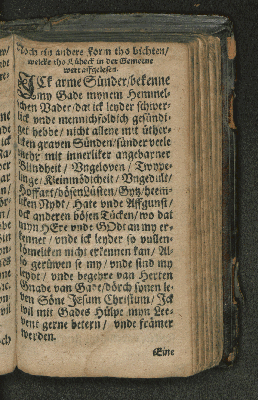 Noch ein andere Form tho bichten/
welcke tho Lübeck in der Gemeine
wert affgelesen.
ICk arme Sünder/bekenne
my Gade mynem Hemmel-
schen Vader/dat ick leyder schwer-
lick vnde mennichfoldich gesündi-
get hebbe/ nicht allene mit üther-
liken grauen Sünden/sünder vele
mehr mit innerliker angebarner
Blindheit/ Vngeloven/ Twyve-
linge/Kleinmödicheit/ Vngedult/
Hoffart/bösen Lüsten/Gytz/heem-
liken Nydt/ Hate vnde Affgunst/
ock anderen bösen Tücken/wo dat
myn HEre vnde GOdt an my er-
kennet/ vnde ick leyder so vullen-
kömeliken nicht erkennen kan/ Al-
so gerüwen se my/ vnde sind my
leydt/ vnde begehre van Herten
Gnade van Gade/dörch synen le-
ven Söne JEsum Christum/ Ick
wil mit Gades Hülpe myn Lee-
vent gerne betern/ vnde framer
werden.
Eine